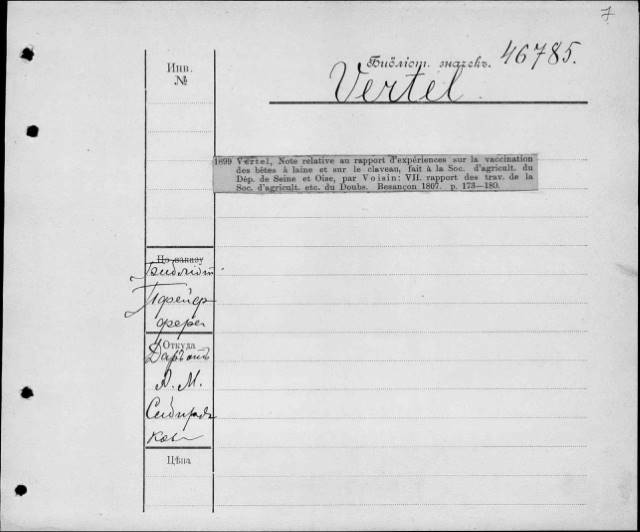 7
Инв.
№
Библіот. значекъ. 46785.
Vertel
1899 Vertel, Note relative au rapport d'expériences sur la vaccination
des bêtes à laine et sur le claveau, fait à la Soc. d'agricult. du
Dép. de Seine et Oise, par Voisin: VII. rapport des trav. de la
Soc. d'agricult. etc. du Doubs. Besançon 1807. p. 173—180.
По заказу
Библіот
Пфейф
фера
Откуда
Даръ отъ
А. М.
Сибиряк
кова
Цѣна